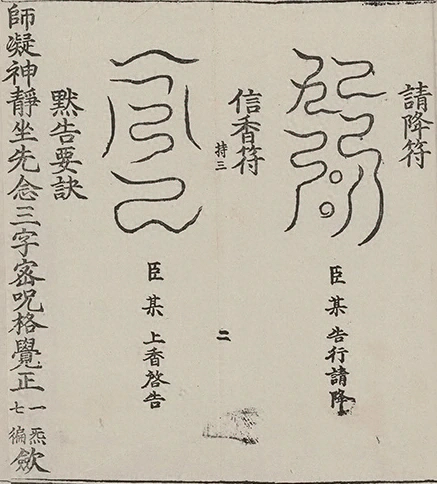 請降符
臣某告行請降
持三
二
信香符
臣某上香啓告
默告要訣
師凝神靜坐先念三字密呪格覺正一炁七徧歛